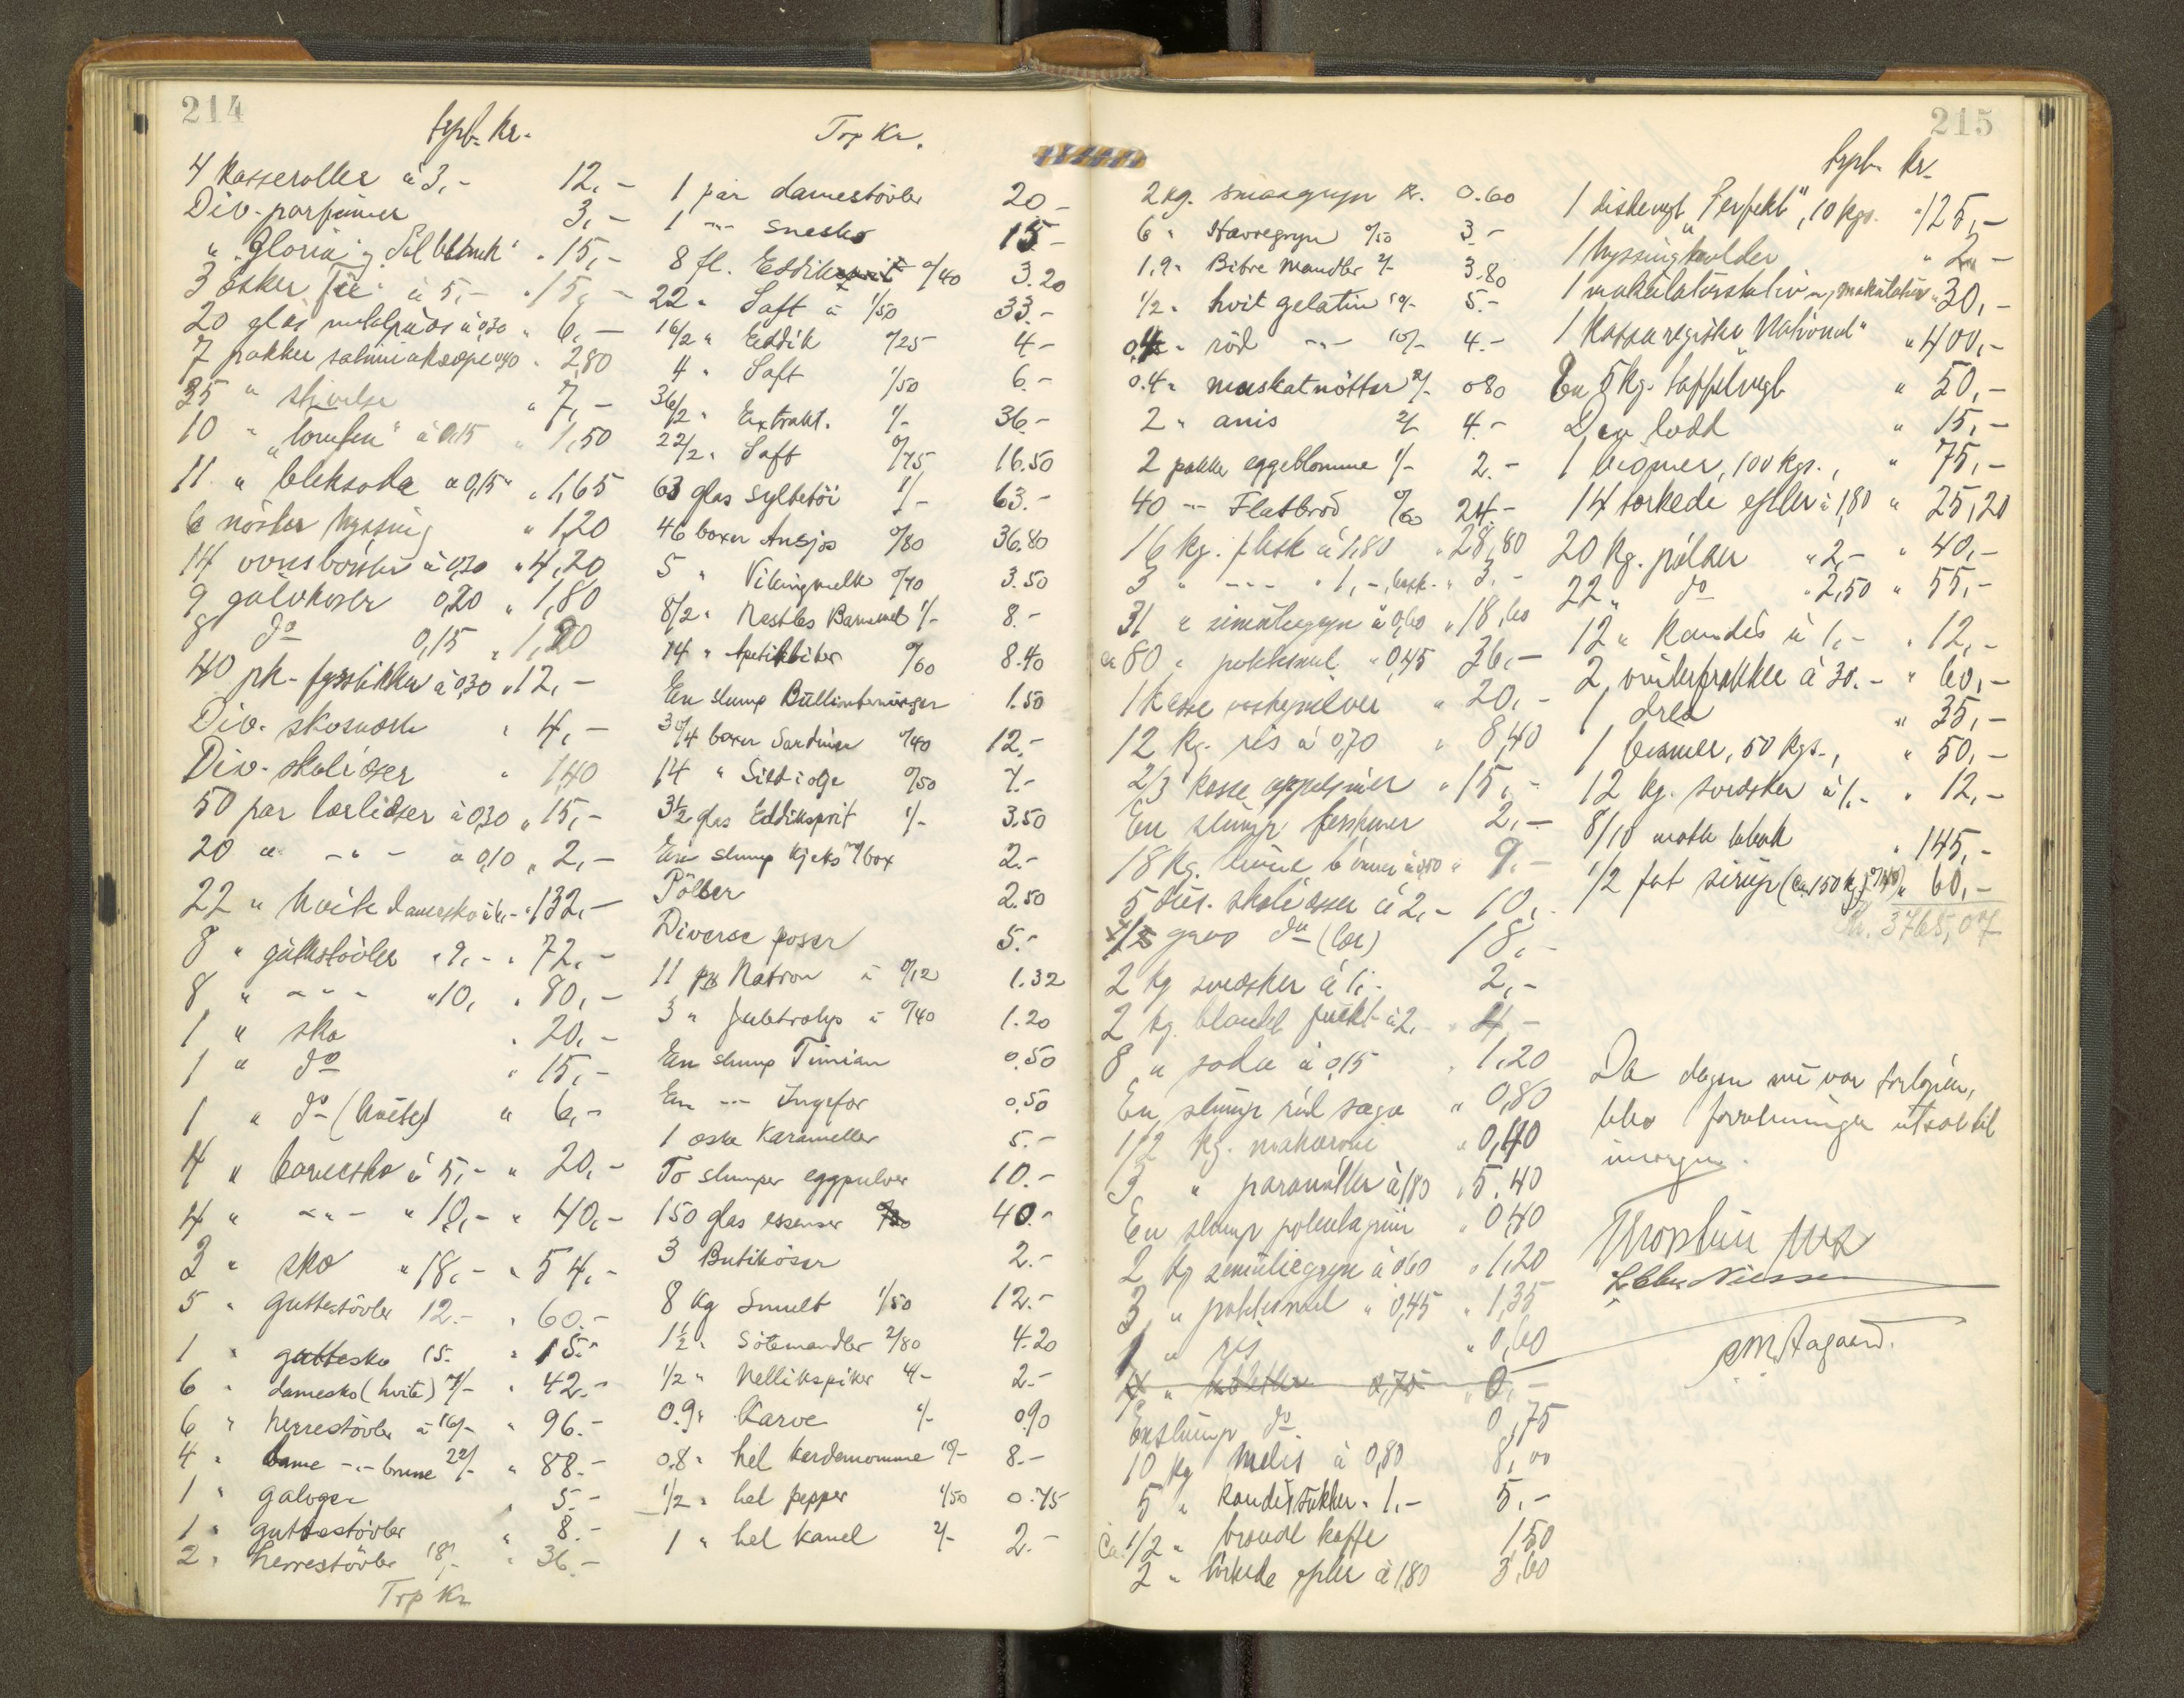 214
Trpt. Kr.
4 Kasseroller à 3,- 12,-
Div. parfumer 3,-
" "Gloria" og Sølvblank " 15,-
3 æsker " à 5,- " 15,-
20 glas à 0,30 " 6,-
7 pakker salmiaksæpe 0,40 " 2,80
35 " stivelse " 7,-
10 " à 0,15 " 1,50
11 " bleksoda à 0,15 " 1,65
6 nøster hyssing " 1,20
14 ovnsbørster à 0,30 " 4,20
9 gulvkoser 0,20 " 1,80
8 do 0,15 " 1,20
40 pk. fyrstikker à 0,30 " 12,-
Div. skosværte " 4,-
Div. skolisser " 1,40
50 par lærlisser à 0,30 " 15,-
20 " -"- à 0,10 " 2,-
22 " hvite damesko à 6,- " 132,-
8 " guttestövler " 9,- " 72,-
8 " -"- " 10, " 80,-
1 " sko " 20,-
1 " do " 15,-
1 " do (hvite) " 6,-
4 " barnesko à 5,- " 20,-
4 " -"- " 10,- " 40,-
3 " sko " 18,- " 54,-
5 " guttestövler 12.- " 60.-
1 " guttesko 15.- " 15.-
6 " damesko (hvite) 7/- " 42.-
6 " herrestövler à 16/- " 96.-
4 " dame -"- brune 22/- " 88.-
1 " galoger " 5.-
1 " guttestövler " 8.-
2 " herrestövler 18/- " 36.-
Trp Kr
Trp Kr.
1 par damestövler 20-
1 -"- snesko 15-
8 fl. Eddik 0/40 3.20
22 " Saft à 1/50 33.-
16/2 " Eddik 0/25 4.-
4 " Saft 1/50 6.-
36/2 " Extrakt. 1/- 36.-
22/2 " Saft 0/75 16.50
63 glas syltetöi 1/- 63.-
46 boxer Ansjos 0/80 36.80
5 " Vikingmelk 0/70 3.50
8/2 " Nestles Barnemel 1/- 8.-
14 " Apetitbiter 0/60 8.40
En slump Bullinterninger 1.50
30/4 boxer Sardiner 0/40 12.-
14 " Sild i olje 0/50 7.-
3½ glas Eddiksprit 1/- 3.50
En slump Kjeks m/box 2.-
Pölser 2.50
Diverse poser 5.-
11 ps Natron à 0/12 1.32
3 " à 0/40 1.20
En slump Timian 0.50
En -"- Ingefær 0.50
1 æske Karameller 5.-
To slumper eggpulver 10.-
150 glas essenser 40.-
3 Butiköser 2.-
8 kg Smult 1/50 12.-
1½ " Sötemandler 2/80 4.20
1/2 " Nellikspiker 4/- 2.-
0.9 " Karve 1/- 0.90
0.8 " hel kardemomme 10/- 8.-
1/2 " hel pepper 1/50 0.75
1 " hel kanel 2/- 2.-
215
2 kg. smaagryn Kr. 0.60
6 " Havregryn 0/50 3.-
1,9 " Bitre Mandler 2/- 3.80
1/2 " hvit gelatin 10/- 5.-
0,4 " röd -"- 10/- 4.-
0.4 " muskatnötter 2/- 0.80
2 " anis 2/- 4.-
2 pakker eggeblomme 1/- 2.-
40 -"- Flatbröd 0/60 24.-
16 kg. flesk à 1,80 " 28,80
3 " -"- " 1,- " 3.-
31 " semuliegryn à 0,60 " 18,60
ca 80 " potetmel " 0,45 36,-
1 kasse vaskepulver " 20,-
12 kg. ris à 0,70 " 8,40
2/3 kasse appelsiner " 15,-
En slump 2,-
18 kg. bönner à 0,50 " 9.-
5 dus. skolisser à 2,- 10,-
gros do (lær) 18,-
2 kg svedsker à 1,- 2,-
2 kg. blandet frukt à 2,- " 4,-
8 " soda à 0,15 " 1,20
En slump röd sago " 0,80
1/2 kg. makaroni " 0,40
3 " paranötter à 1,80 " 5,40
En slump " 0,40
2 kg semuliegryn à 0,60 " 1,20
3 " potetmel " 0,45 " 1,35
1 " ris " 0,60
En slump do 0,75
10 kg Melis à 0,80 8,00
5 " kandissukker " 1,- 5,-
ca. 1/2 " brændt kaffe 1,50
2 " tørkede epler à 1,80 3,60
Trpt. Kr.
1 diskevegt "Perfekt", 10 kgs. " 125,-
1 hyssingholder " 2,-
1 makulaturstativ m/ makulatur " 30,-
1 Kassaregister "National" " 400,-
En 5 kg. taffelvegt " 50,-
Div lodd " 15,-
1 bismer, 100 kgs., " 75,-
14 tørkede epler à 1,80 " 25,20
20 kg. pölser " 2,- " 40,-
22 " do " 2,50 " 55,-
12 " Kandis à 1,- " 12,-
2 vinterfrakker à 30.- " 60,-
1 dres " 35,-
1 bismer, 50 kgs., " 50,-
12 kg. svedsker à 1,- " 12,-
8/10 tobak " 145,-
1/2 fat sirup (ca. 150 kg. 0/40) " 60,-
Kr. 3765,07
Da dagen nu var forløpen,
blev forretningen utsat til
imorgen.
Aagaard.